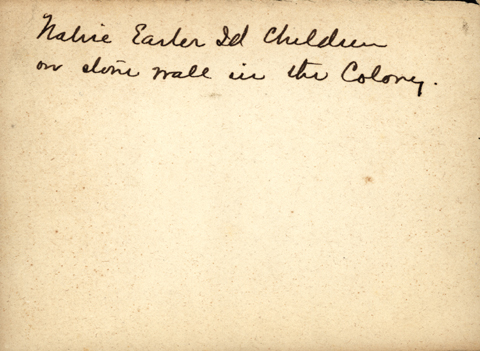 Native Easter Isd Children
on stone wall in the Colony.